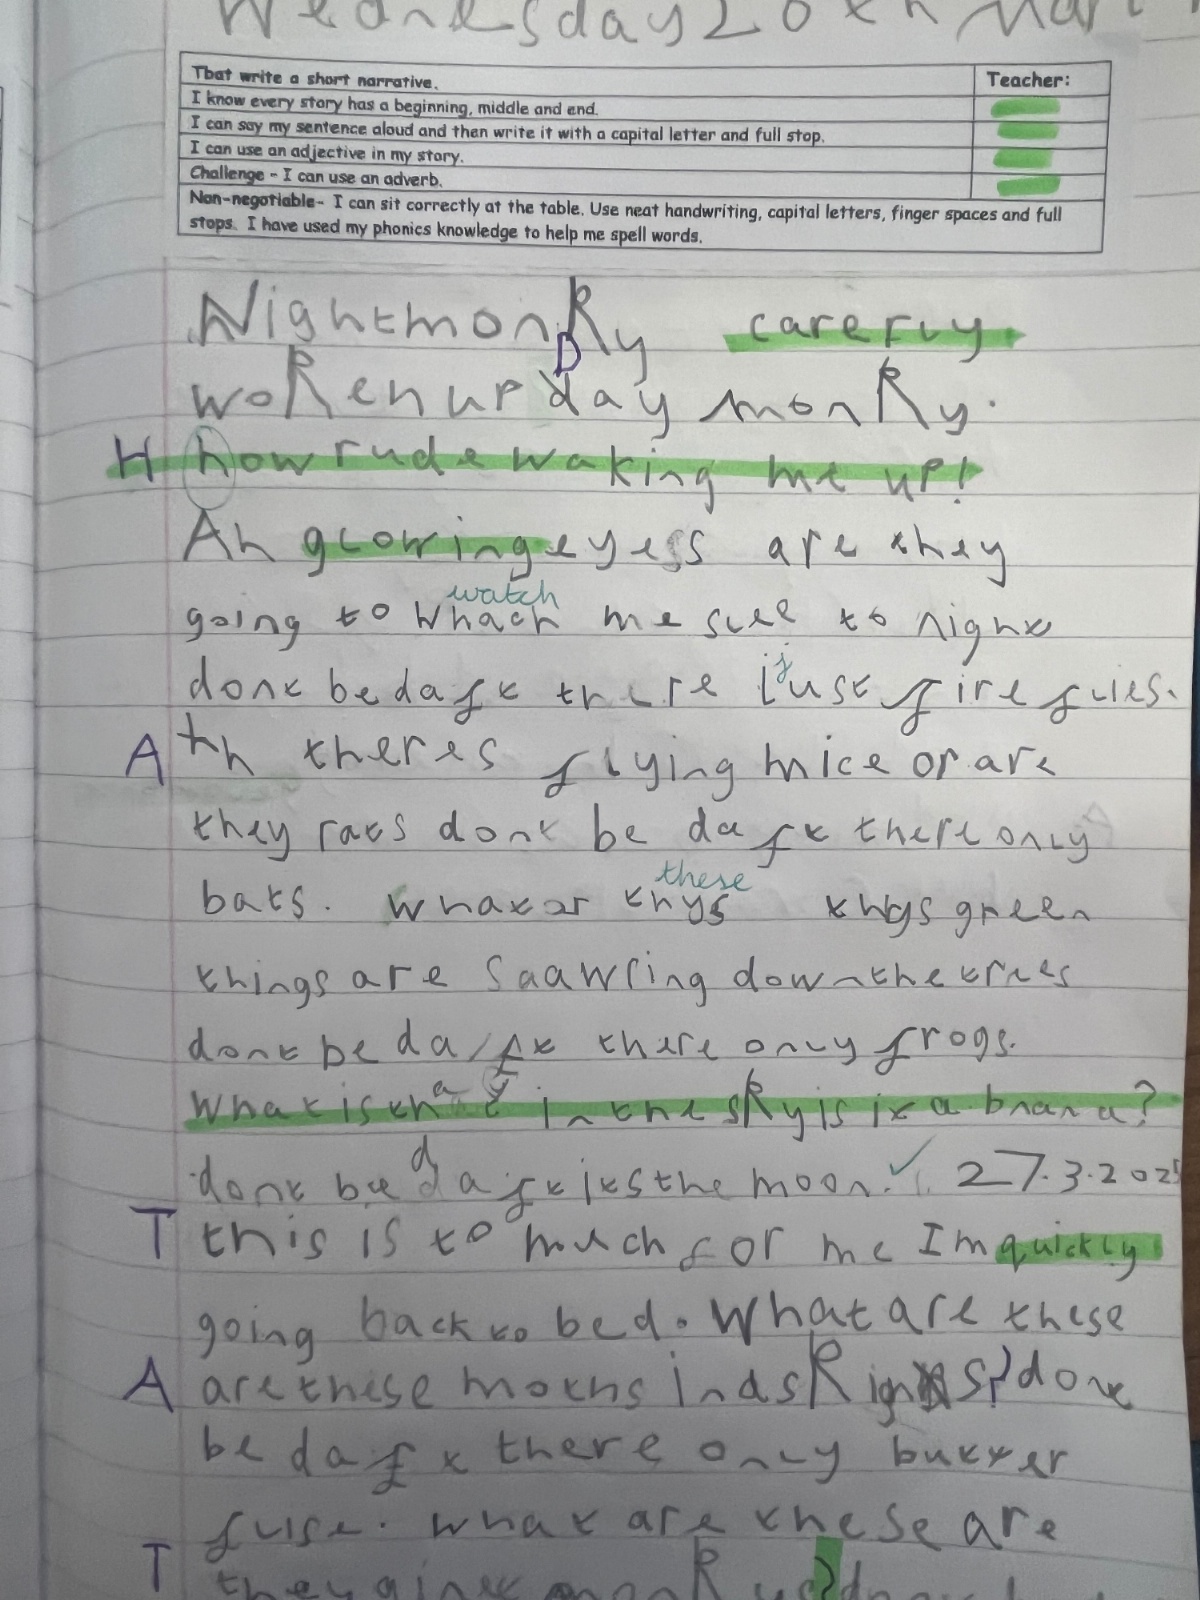 Wednesday 20th Mar
Tbat write a short narrative.
Teacher:
I know every story has a beginning, middle and end.
I can say my sentence aloud and then write it with a capital letter and full stop.
I can use an adjective in my story.
Challenge - I can use an adverb.
Non-negotiable- I can sit correctly at the table. Use neat handwriting, capital letters, finger spaces and full
stops. I have used my phonics knowledge to help me spell words.
Nightmonky carefly
D
woken up day monky.
H how rude waking me up!
Ah glowing eyess are they
watch
going to whach me slee to night
j
dont be daft there just fire flies.
A Ah theres flying mice or are
they rats dont be daft there only
bats. What ar thys thys green
these
things are saawring down the trees
dont be daft there only frogs.
What is that in the sky is it a brana?
dont be daft its the moon. ✓ 27.3.2025
T this is to much for me Im quickly
going back to bed. What are these
A are these moths in dskigs? dont
be daft there only butter
flise. what are these are
T they giant monkys?